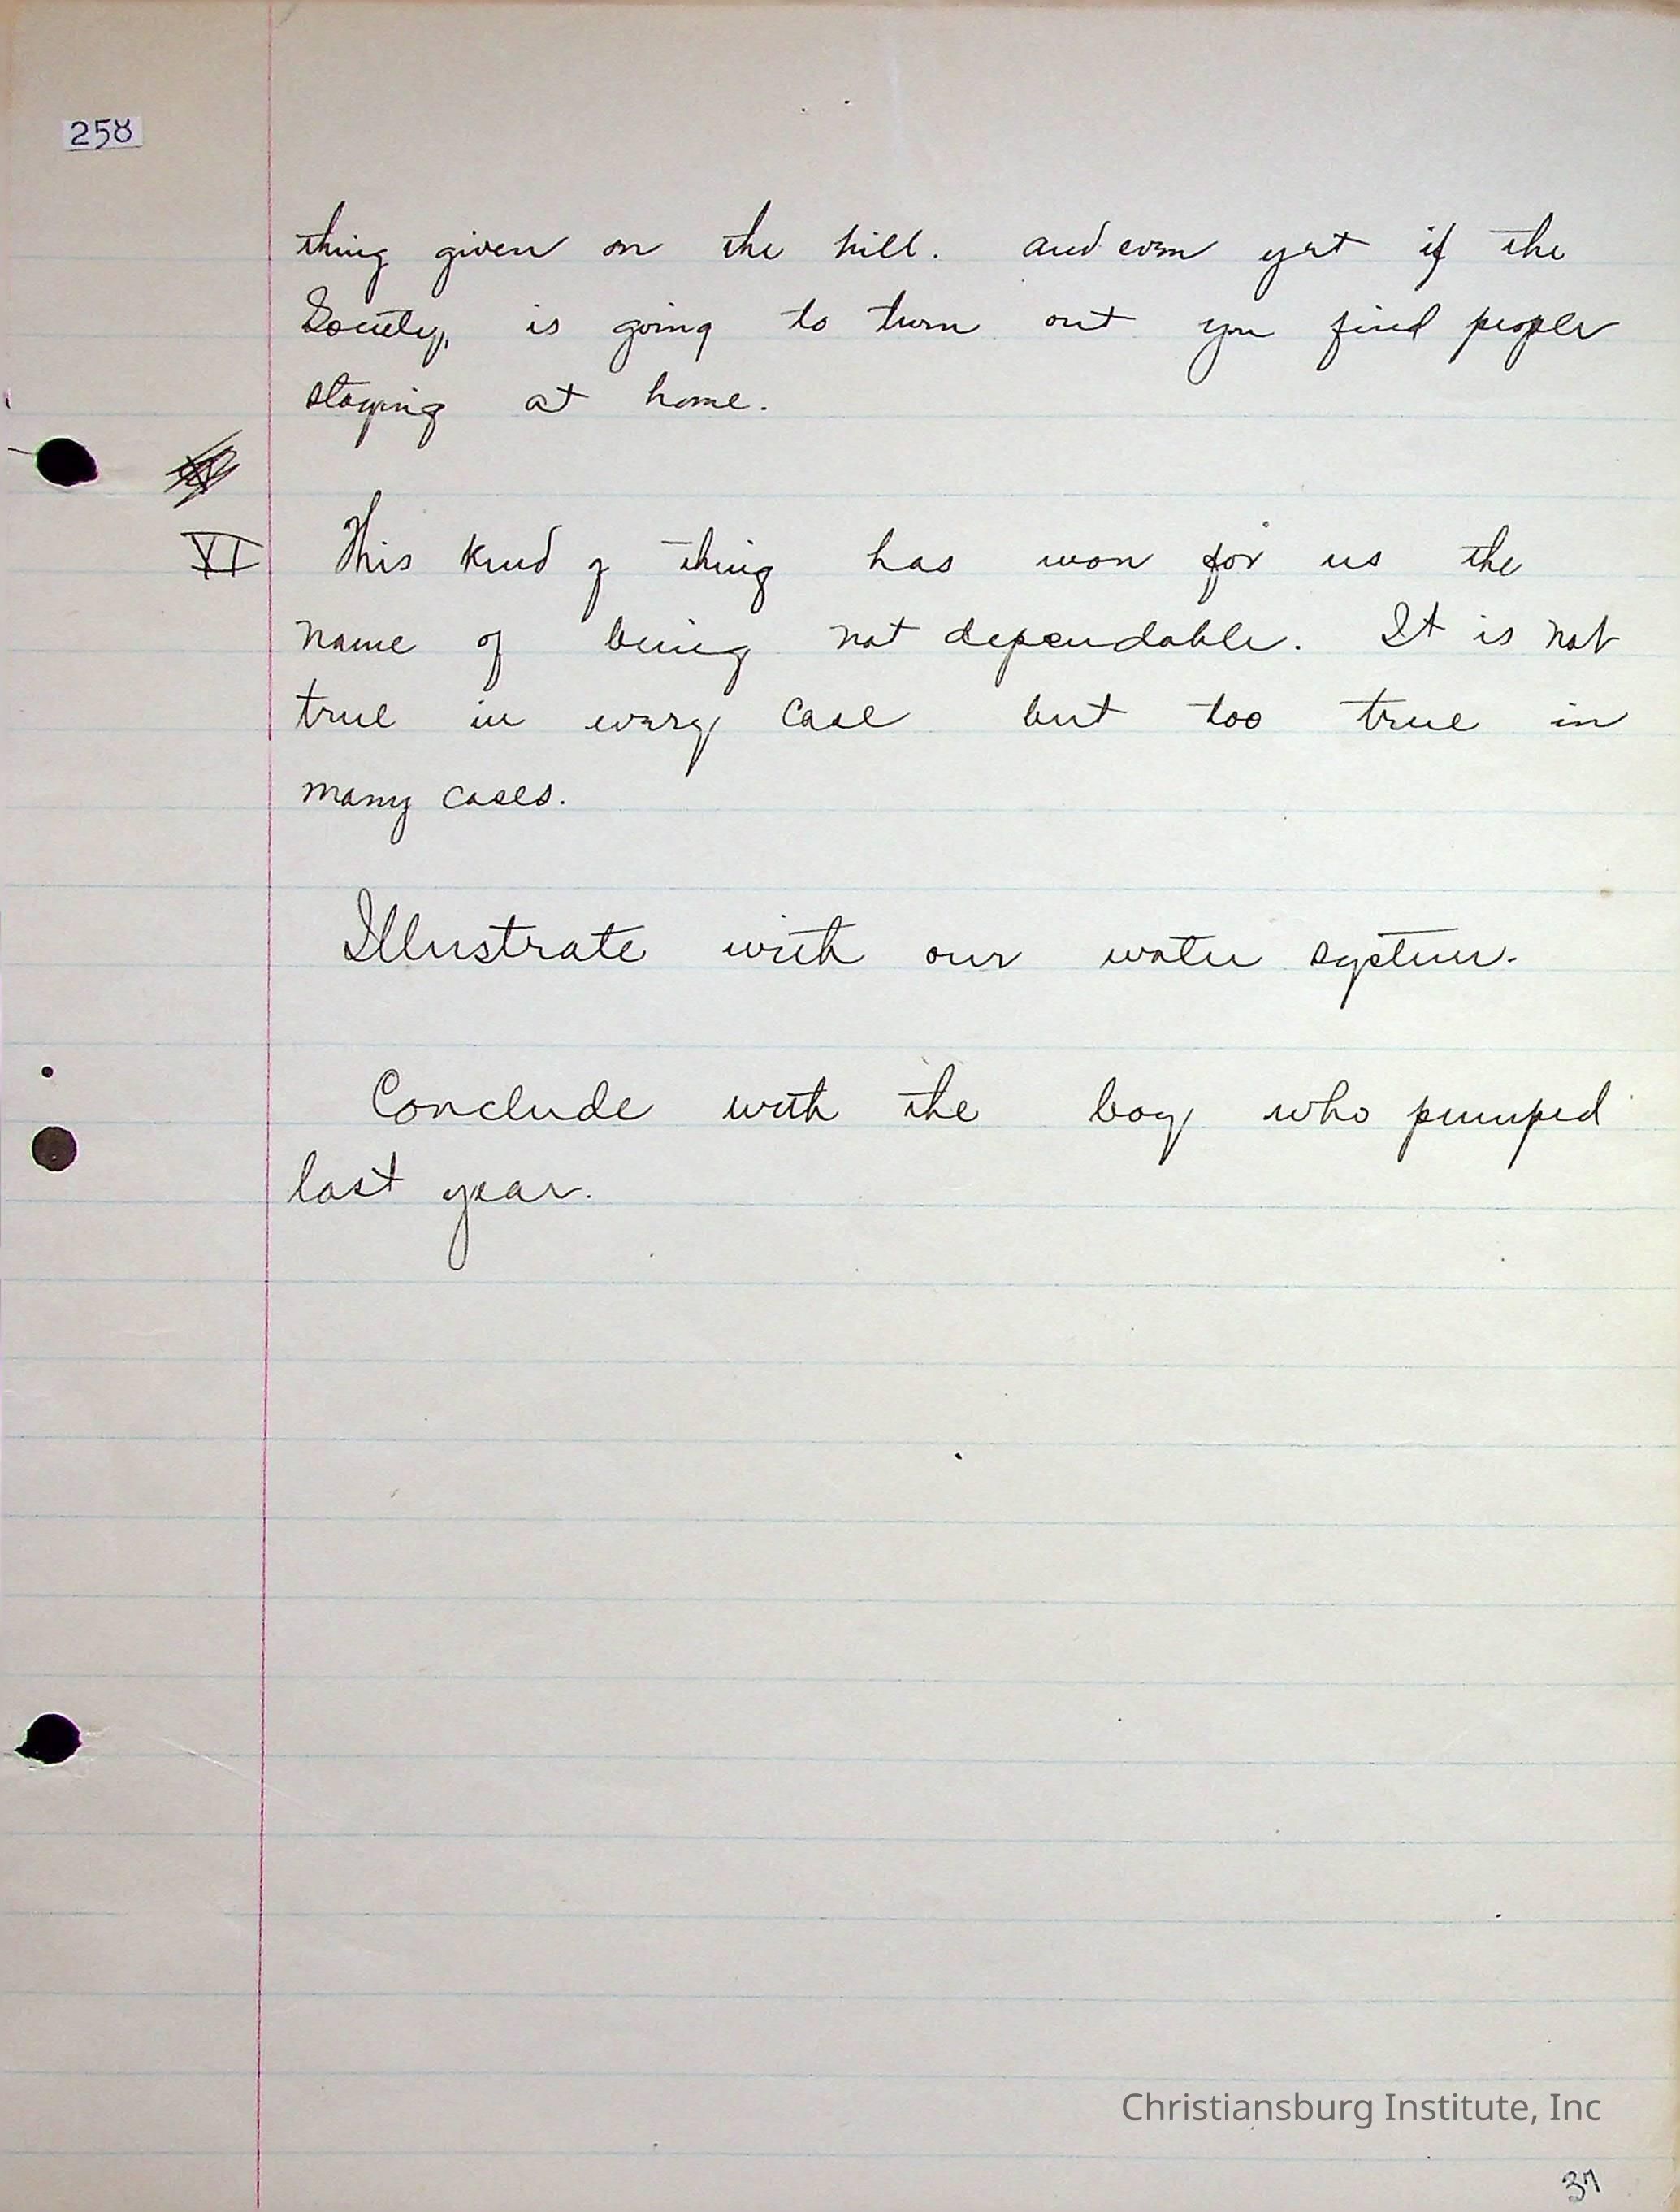 258
thing given on the hill. and even yet if the
Society, is going to turn out you find people
staying at home.
VI This kind of thing has won for us the
name of being not dependable. It is not
true in every case but too true in
many cases.
Illustrate with our water system.
Conclude with the boy who pumped
last year.
Christiansburg Institute, Inc
37